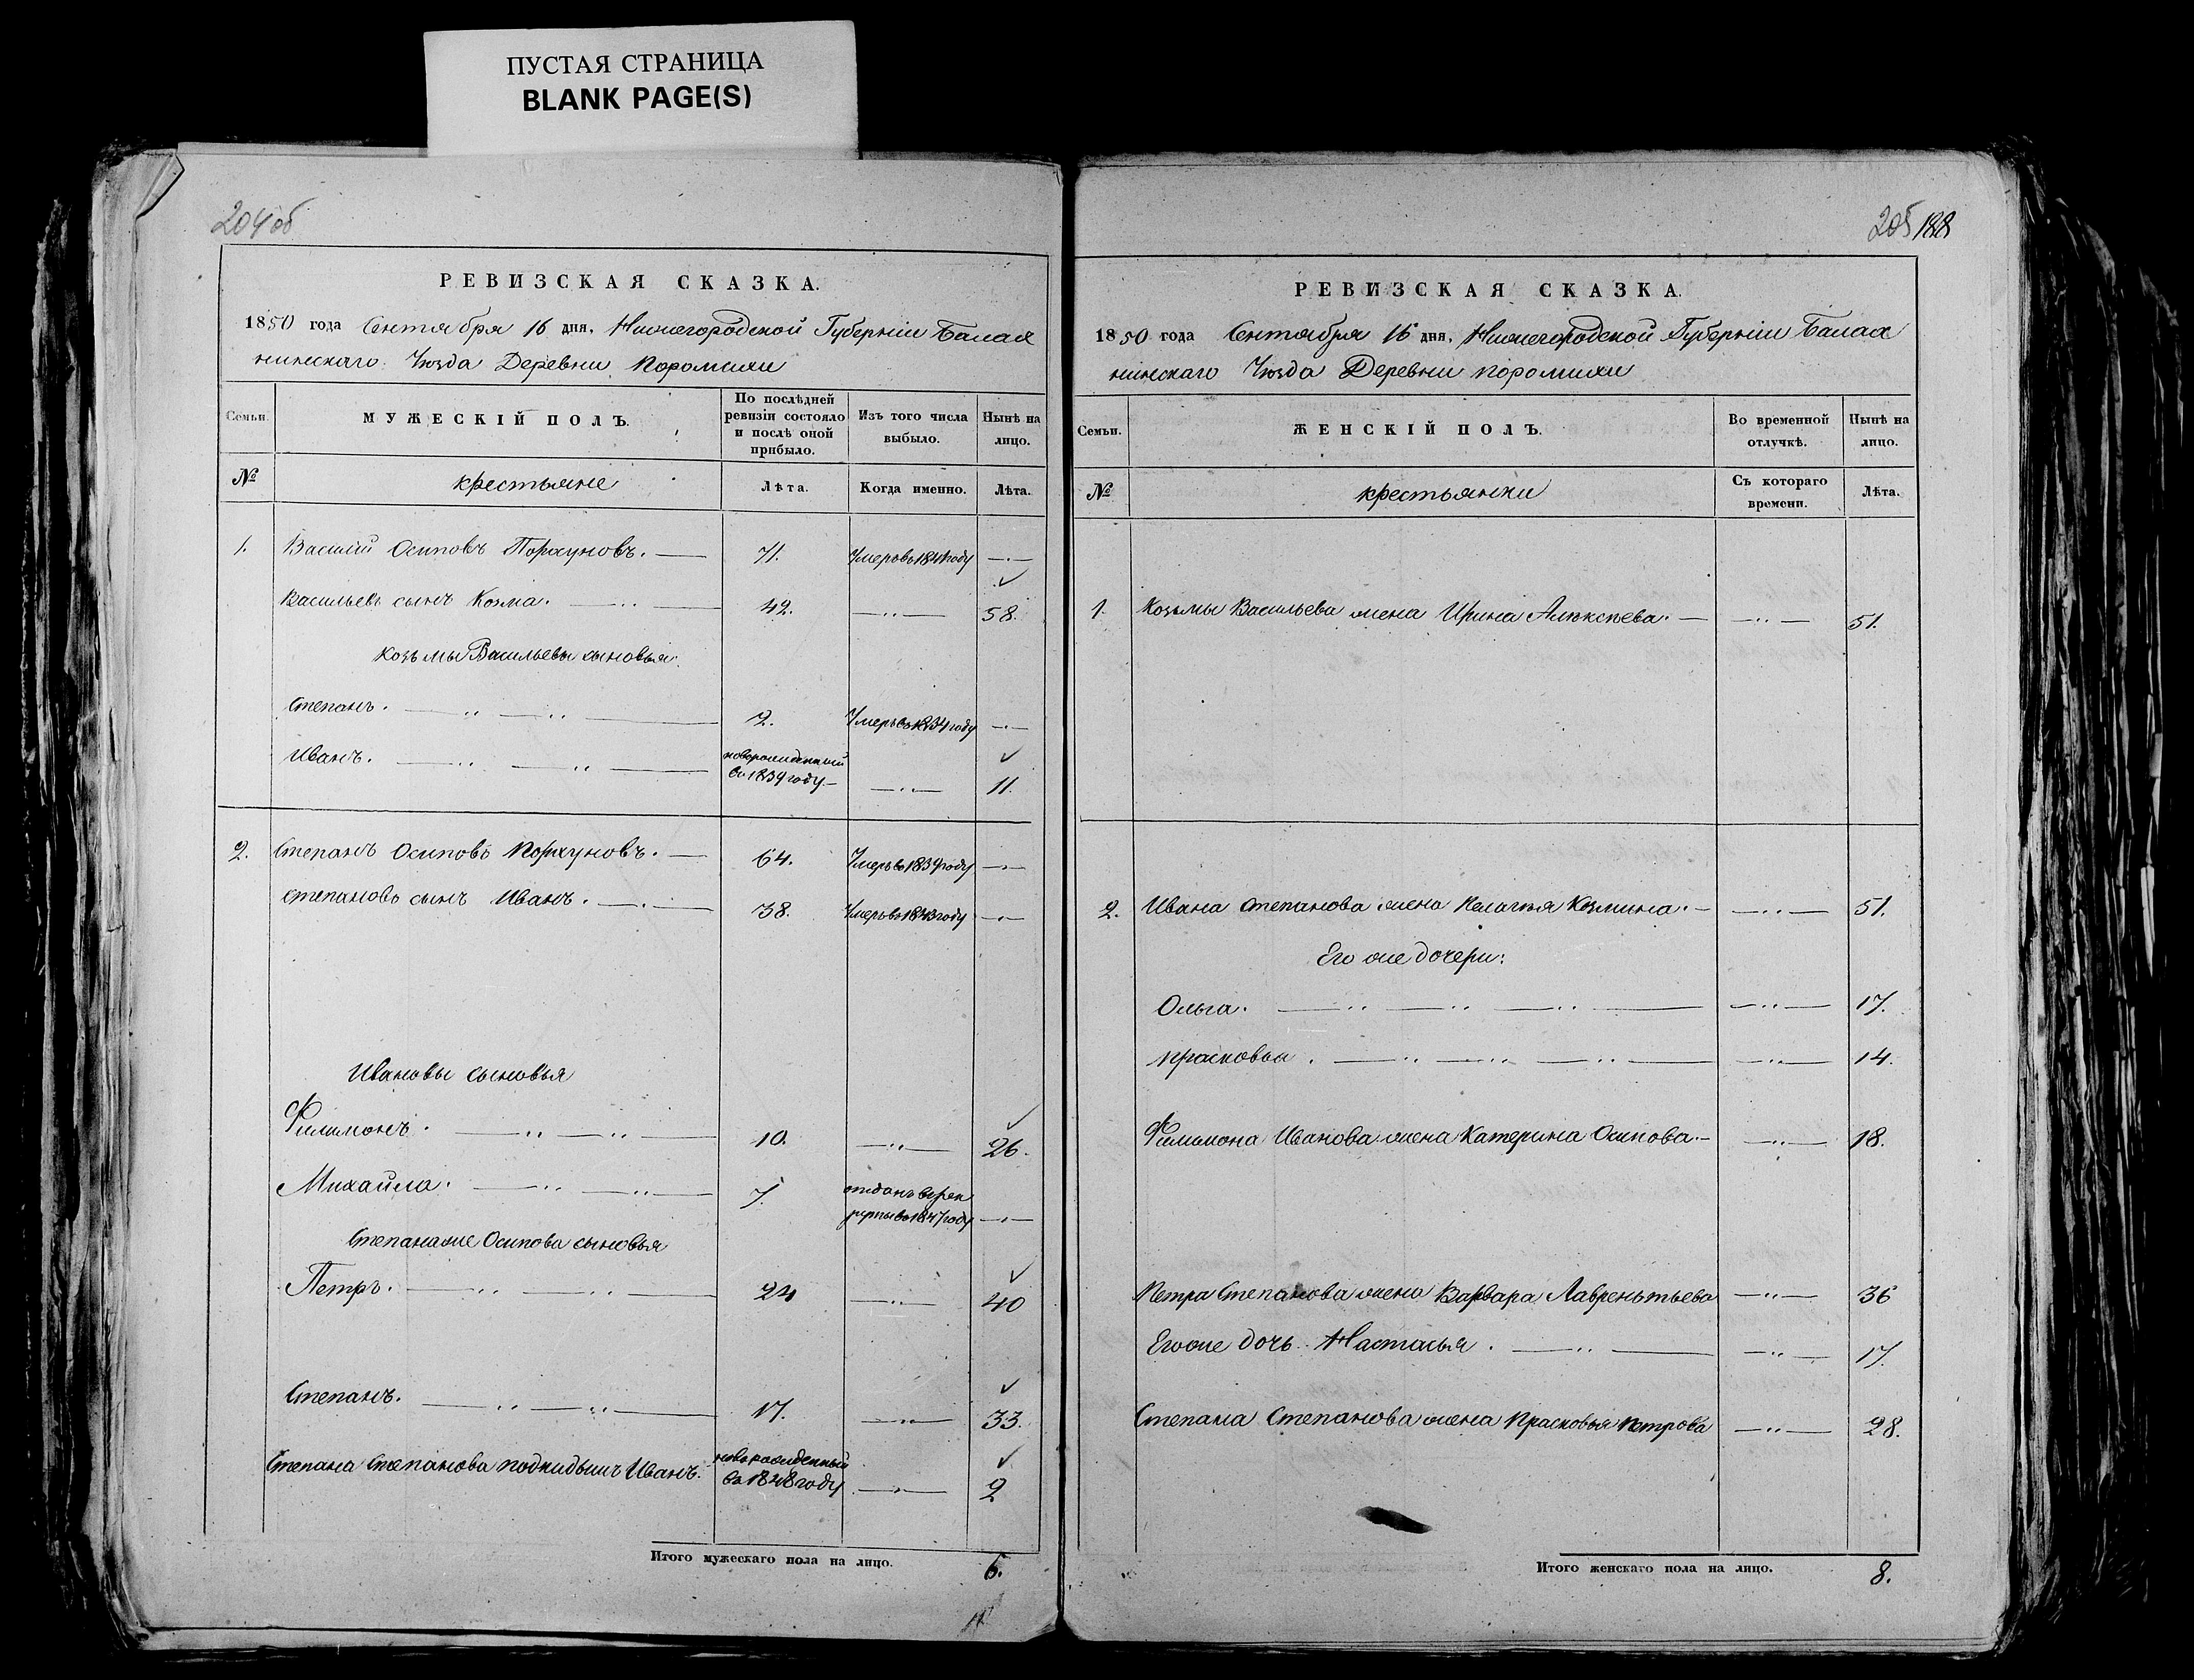 ПУСТАЯ СТРАНИЦА
BLANK PAGE(S)
204об
РЕВИЗСКАЯ СКАЗКА.
1850 года Сентября 16 дня, Нижегородской Губернiи Балах
нинскаго Уѣзда Деревни Поромихи
Семьи.
МУЖЕСКIЙ ПОЛЪ.
По послѣдней ревизiи состояло и послѣ оной прибыло.
Изъ того числа выбыло.
Нынѣ на лицо.
№
крестьяне
Лѣта.
Когда именно.
Лѣта.
1. Василiй Осиповъ Порхуновъ. 71. Умеръ въ 1841 году
Васильевъ сынъ Козма. 42. 58.
Козьмы Васильева сыновья:
Степанъ. 2. Умеръ въ 1834 году
Иванъ. новорожденный
въ 1839 году 11.
2. Степанъ Осиповъ Порхуновъ. 64. Умеръ въ 1839 году
Степановъ сынъ Иванъ. 38. Умеръ въ 1843 году
Ивановы сыновья
Филимонъ. 10. 26.
Михайла. 7. отданъ въ рек
руты въ 1847 году
Степана же Осипова сыновья
Петръ. 24 40
Степанъ. 17. 33.
Степана Степанова подкидышъ Иванъ. новорожденный
въ 1848 году 2
Итого мужескаго пола на лицо. 6.
205 188
РЕВИЗСКАЯ СКАЗКА.
1850 года Сентября 16 дня, Нижегородской Губернiи Балах
нинскаго Уѣзда Деревни Поромихи
Семьи.
ЖЕНСКIЙ ПОЛЪ.
Во временной отлучкѣ.
Нынѣ на лицо.
№
крестьянки
Съ котораго времени.
Лѣта.
1. Козьмы Васильева жена Ирина Алѣксѣева. 51.
2. Ивана Степанова жена Пелагѣя Козмина. 51.
Его же дочери:
Ольга. 17.
Прасковья. 14.
Филимона Иванова жена Катерина Осипова. 18.
Петра Степанова жена Варвара Лаврентьева 36
Его же дочь Настасья. 17.
Степана Степанова жена Прасковья Петрова 28.
Итого женскаго пола на лицо. 8.